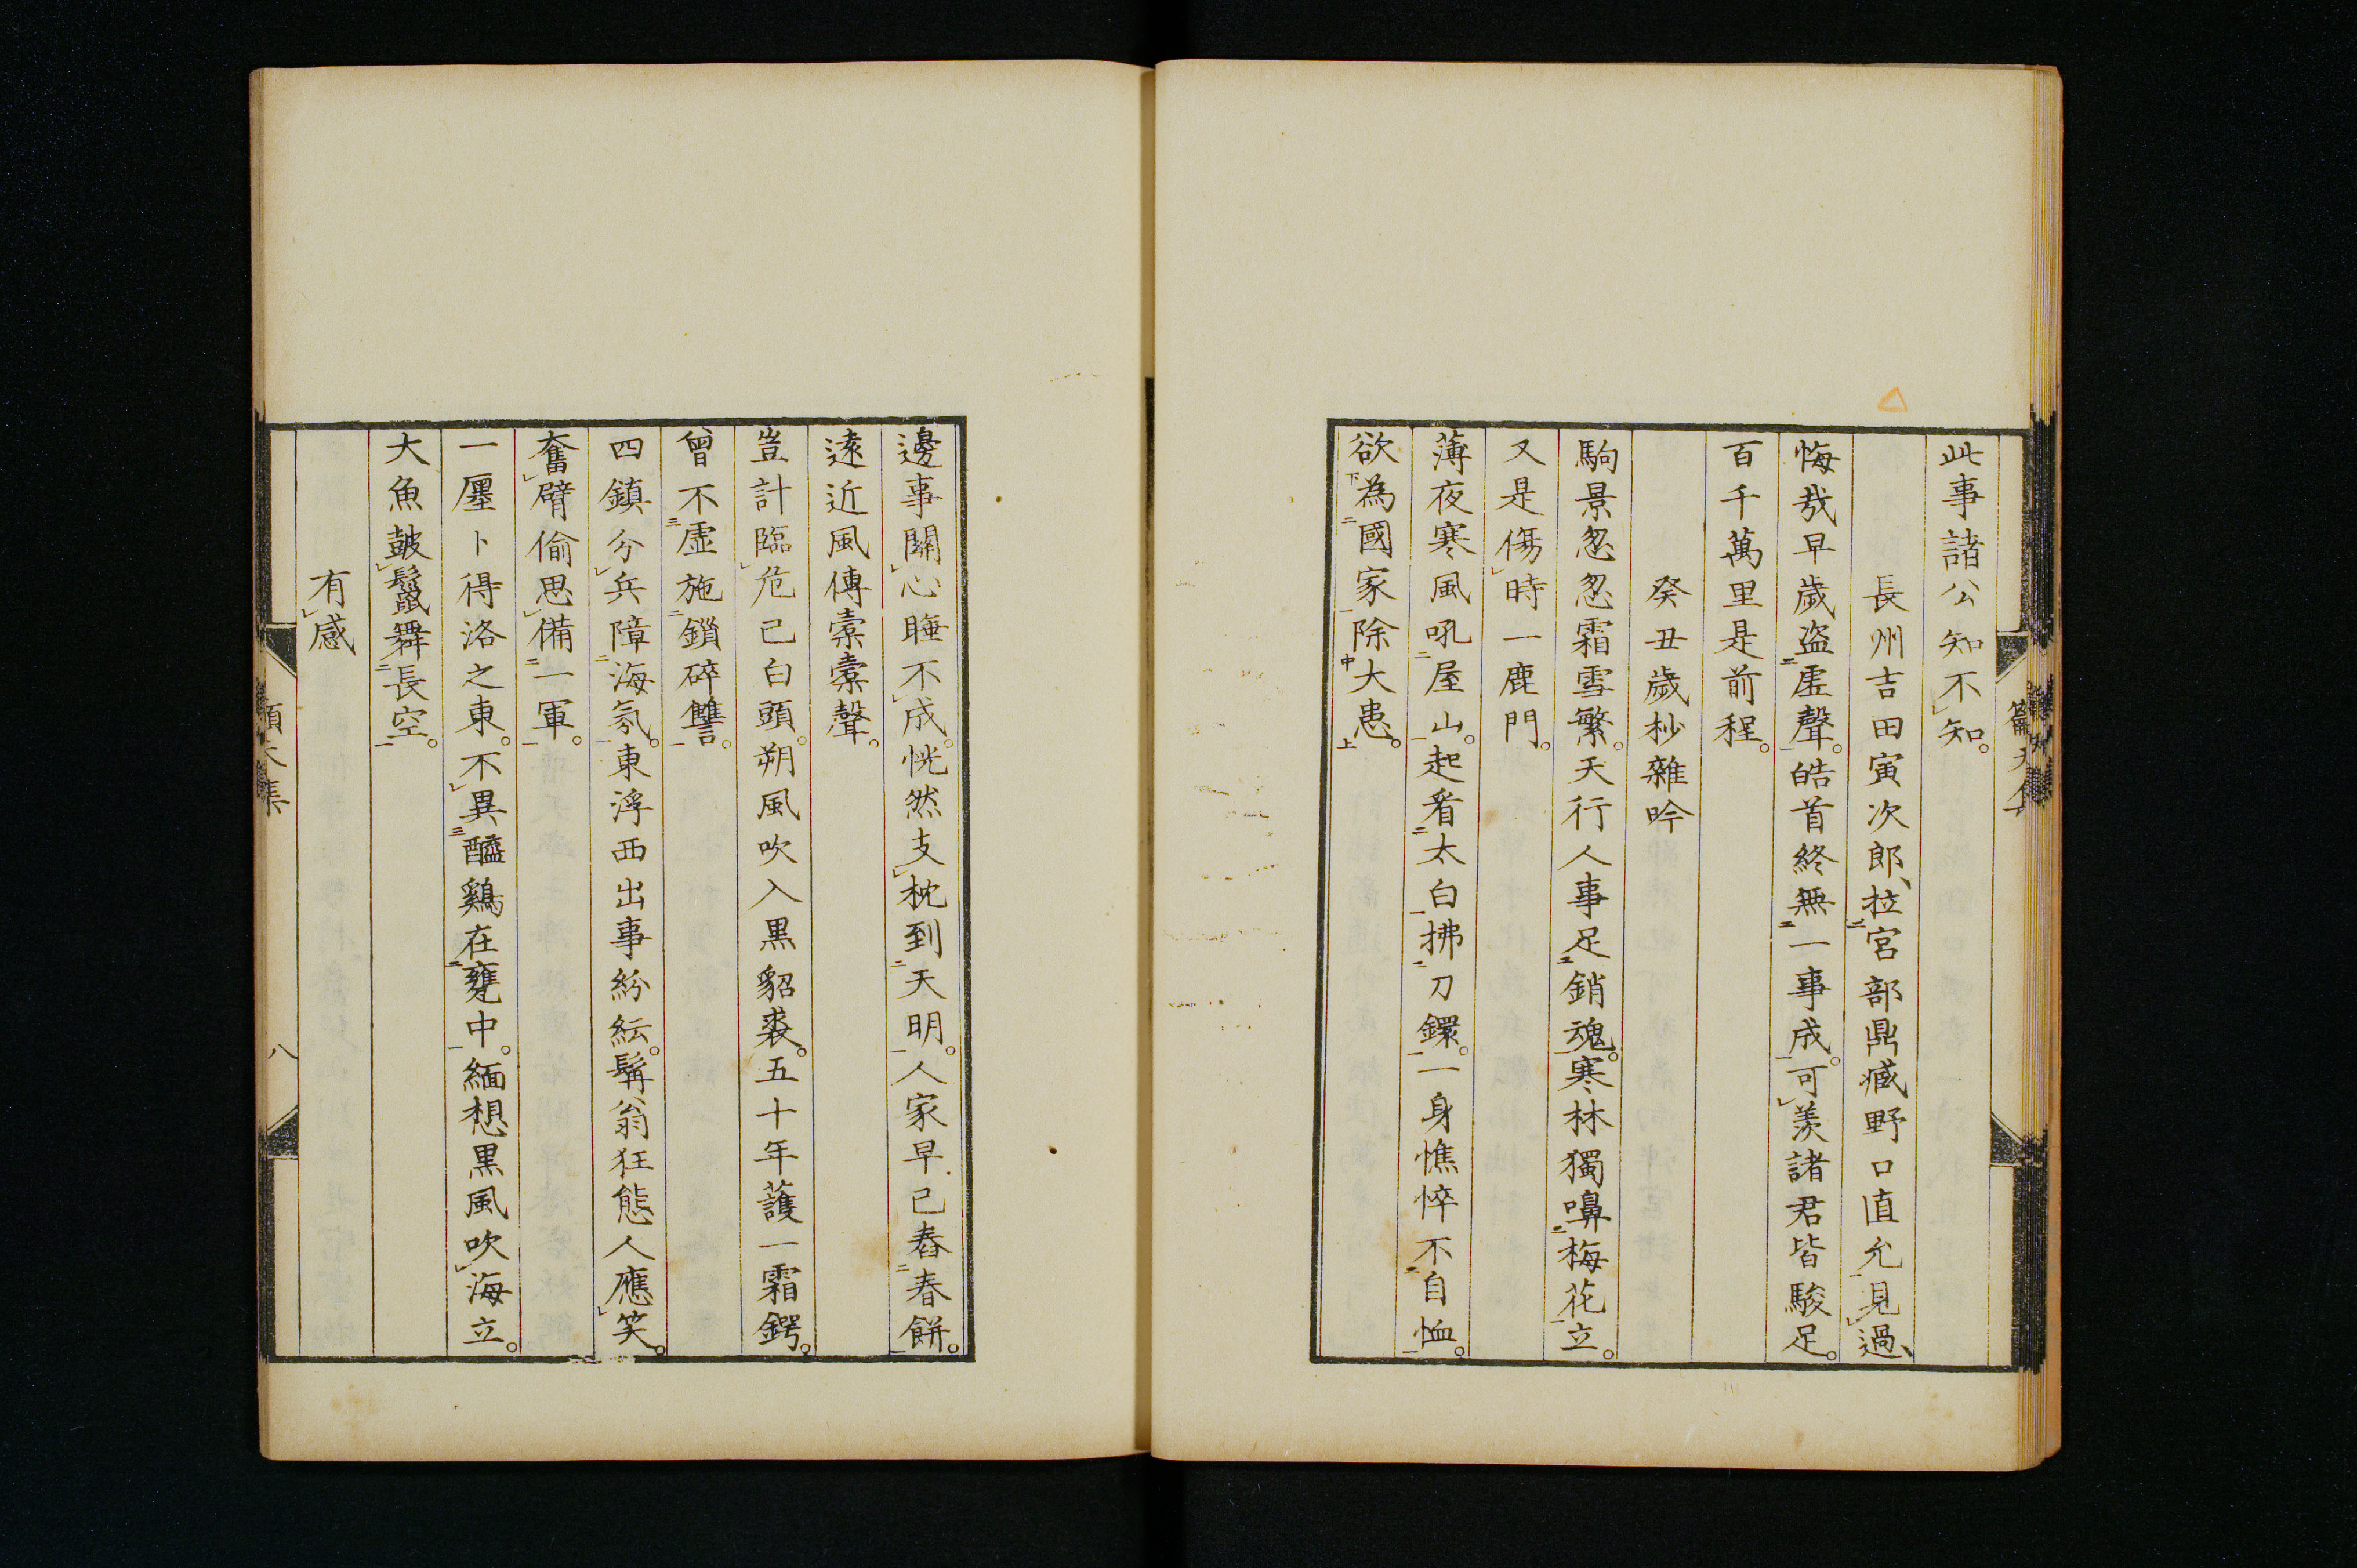 此事諸公知不知。
長州吉田寅次郎、拉宮部鼎臧野口直允見過、
悔哉早歲盜虛聲。皓首終無一事成。可羨諸君皆駿足。
百千萬里是前程。
癸丑歲杪雜吟
駒景忽忽霜雪繁。天行人事足銷魂。寒林獨嗅梅花立。
又是傷時一鹿門。
薄夜寒風吼屋山。起看太白拂刀鐶。一身憔悴不自恤。
欲為國家除大患。
邊事關心睡不成。恍然支枕到天明。人家早已舂春餅。
遠近風傳橐橐聲。
豈計臨危已白頭。朔風吹入黑貂裘。五十年護一霜鍔。
曾不虛施鎖碎讐。
四鎮分兵障海氛。東浮西出事紛紜。髯翁狂態人應笑。
奮臂偷思備一軍。
一厘卜得洛之東。不異醯鷄在甕中。緬想黑風吹海立。
大魚皷鬣舞長空。
有感
八